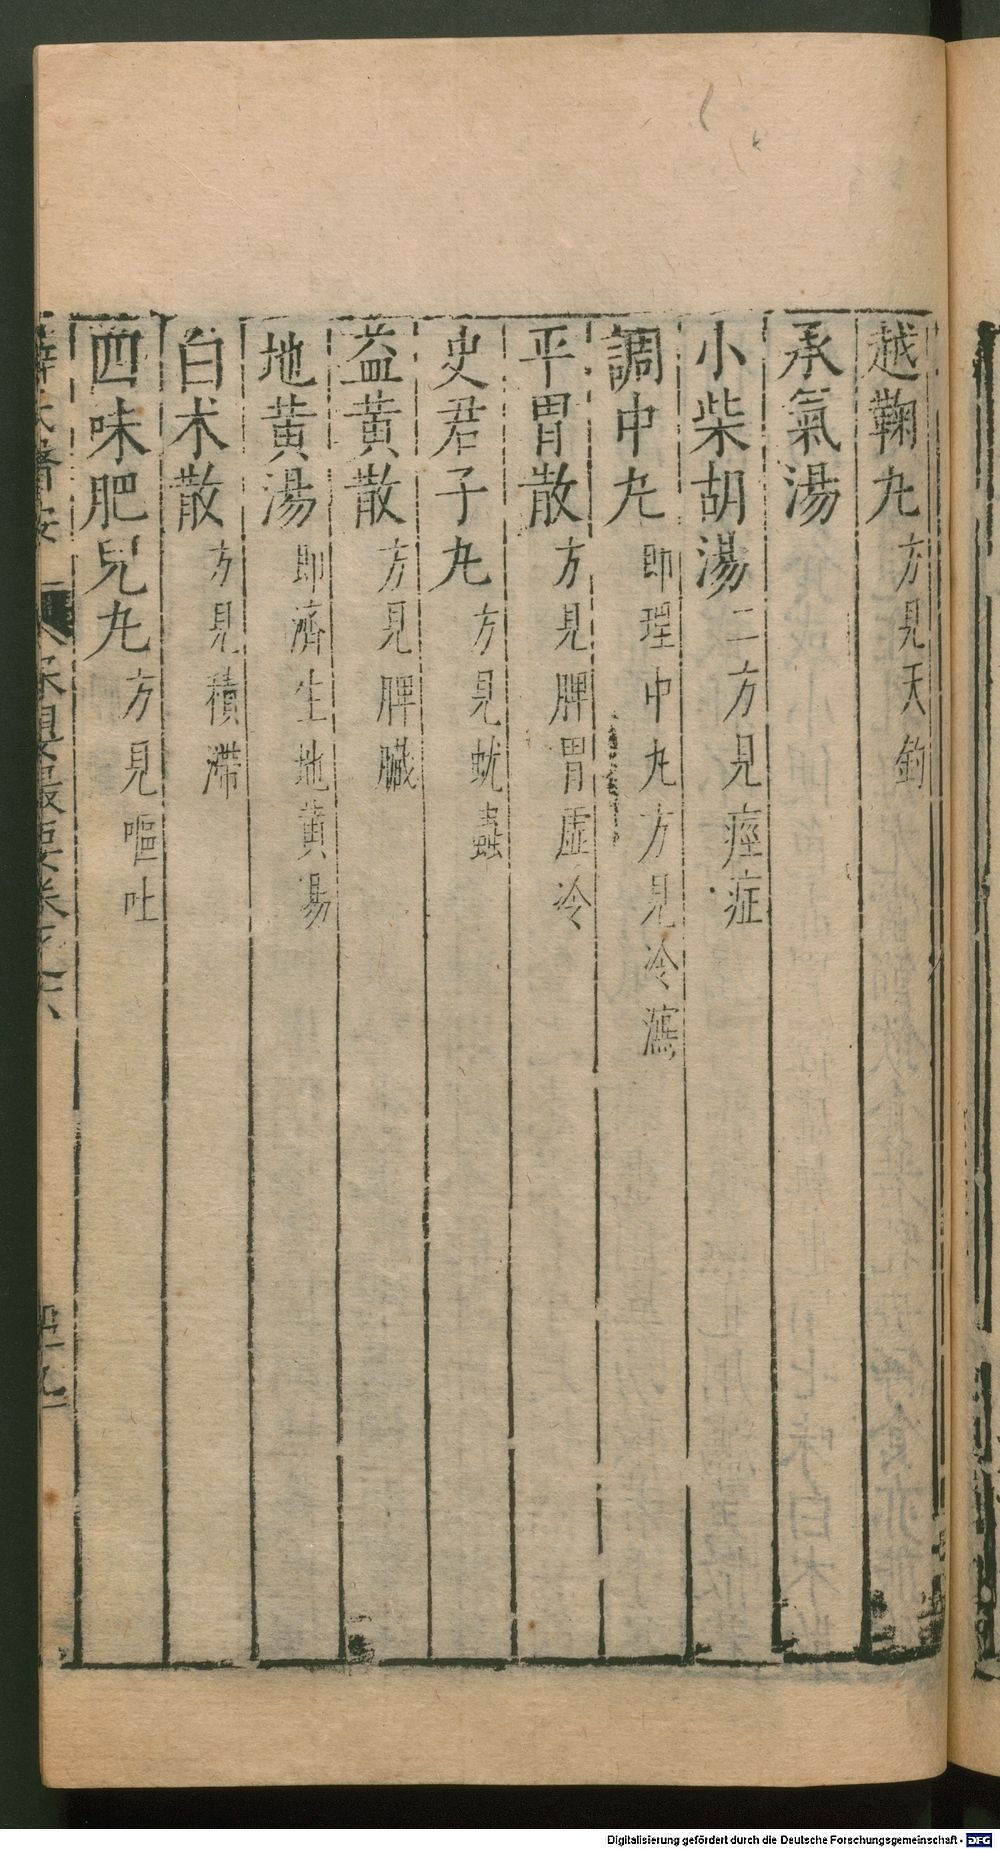 越鞠丸方見天釣
承氣湯
小柴胡湯二方見痙症
調中丸即理中丸方見冷瀉
平胃散方見脾胃虛冷
史君子丸方見蚘蟲
益黃散方見脾臟
地黃湯即濟生地黃湯
白朮散方見積滯
四味肥兒丸方見嘔吐
薛氏醫按 保嬰撮要卷之六
Digitalisierung gefördert durch die Deutsche Forschungsgemeinschaft - DFG